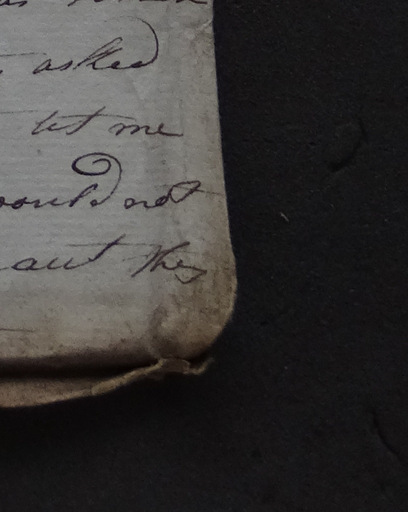 asked
let me
would not
they